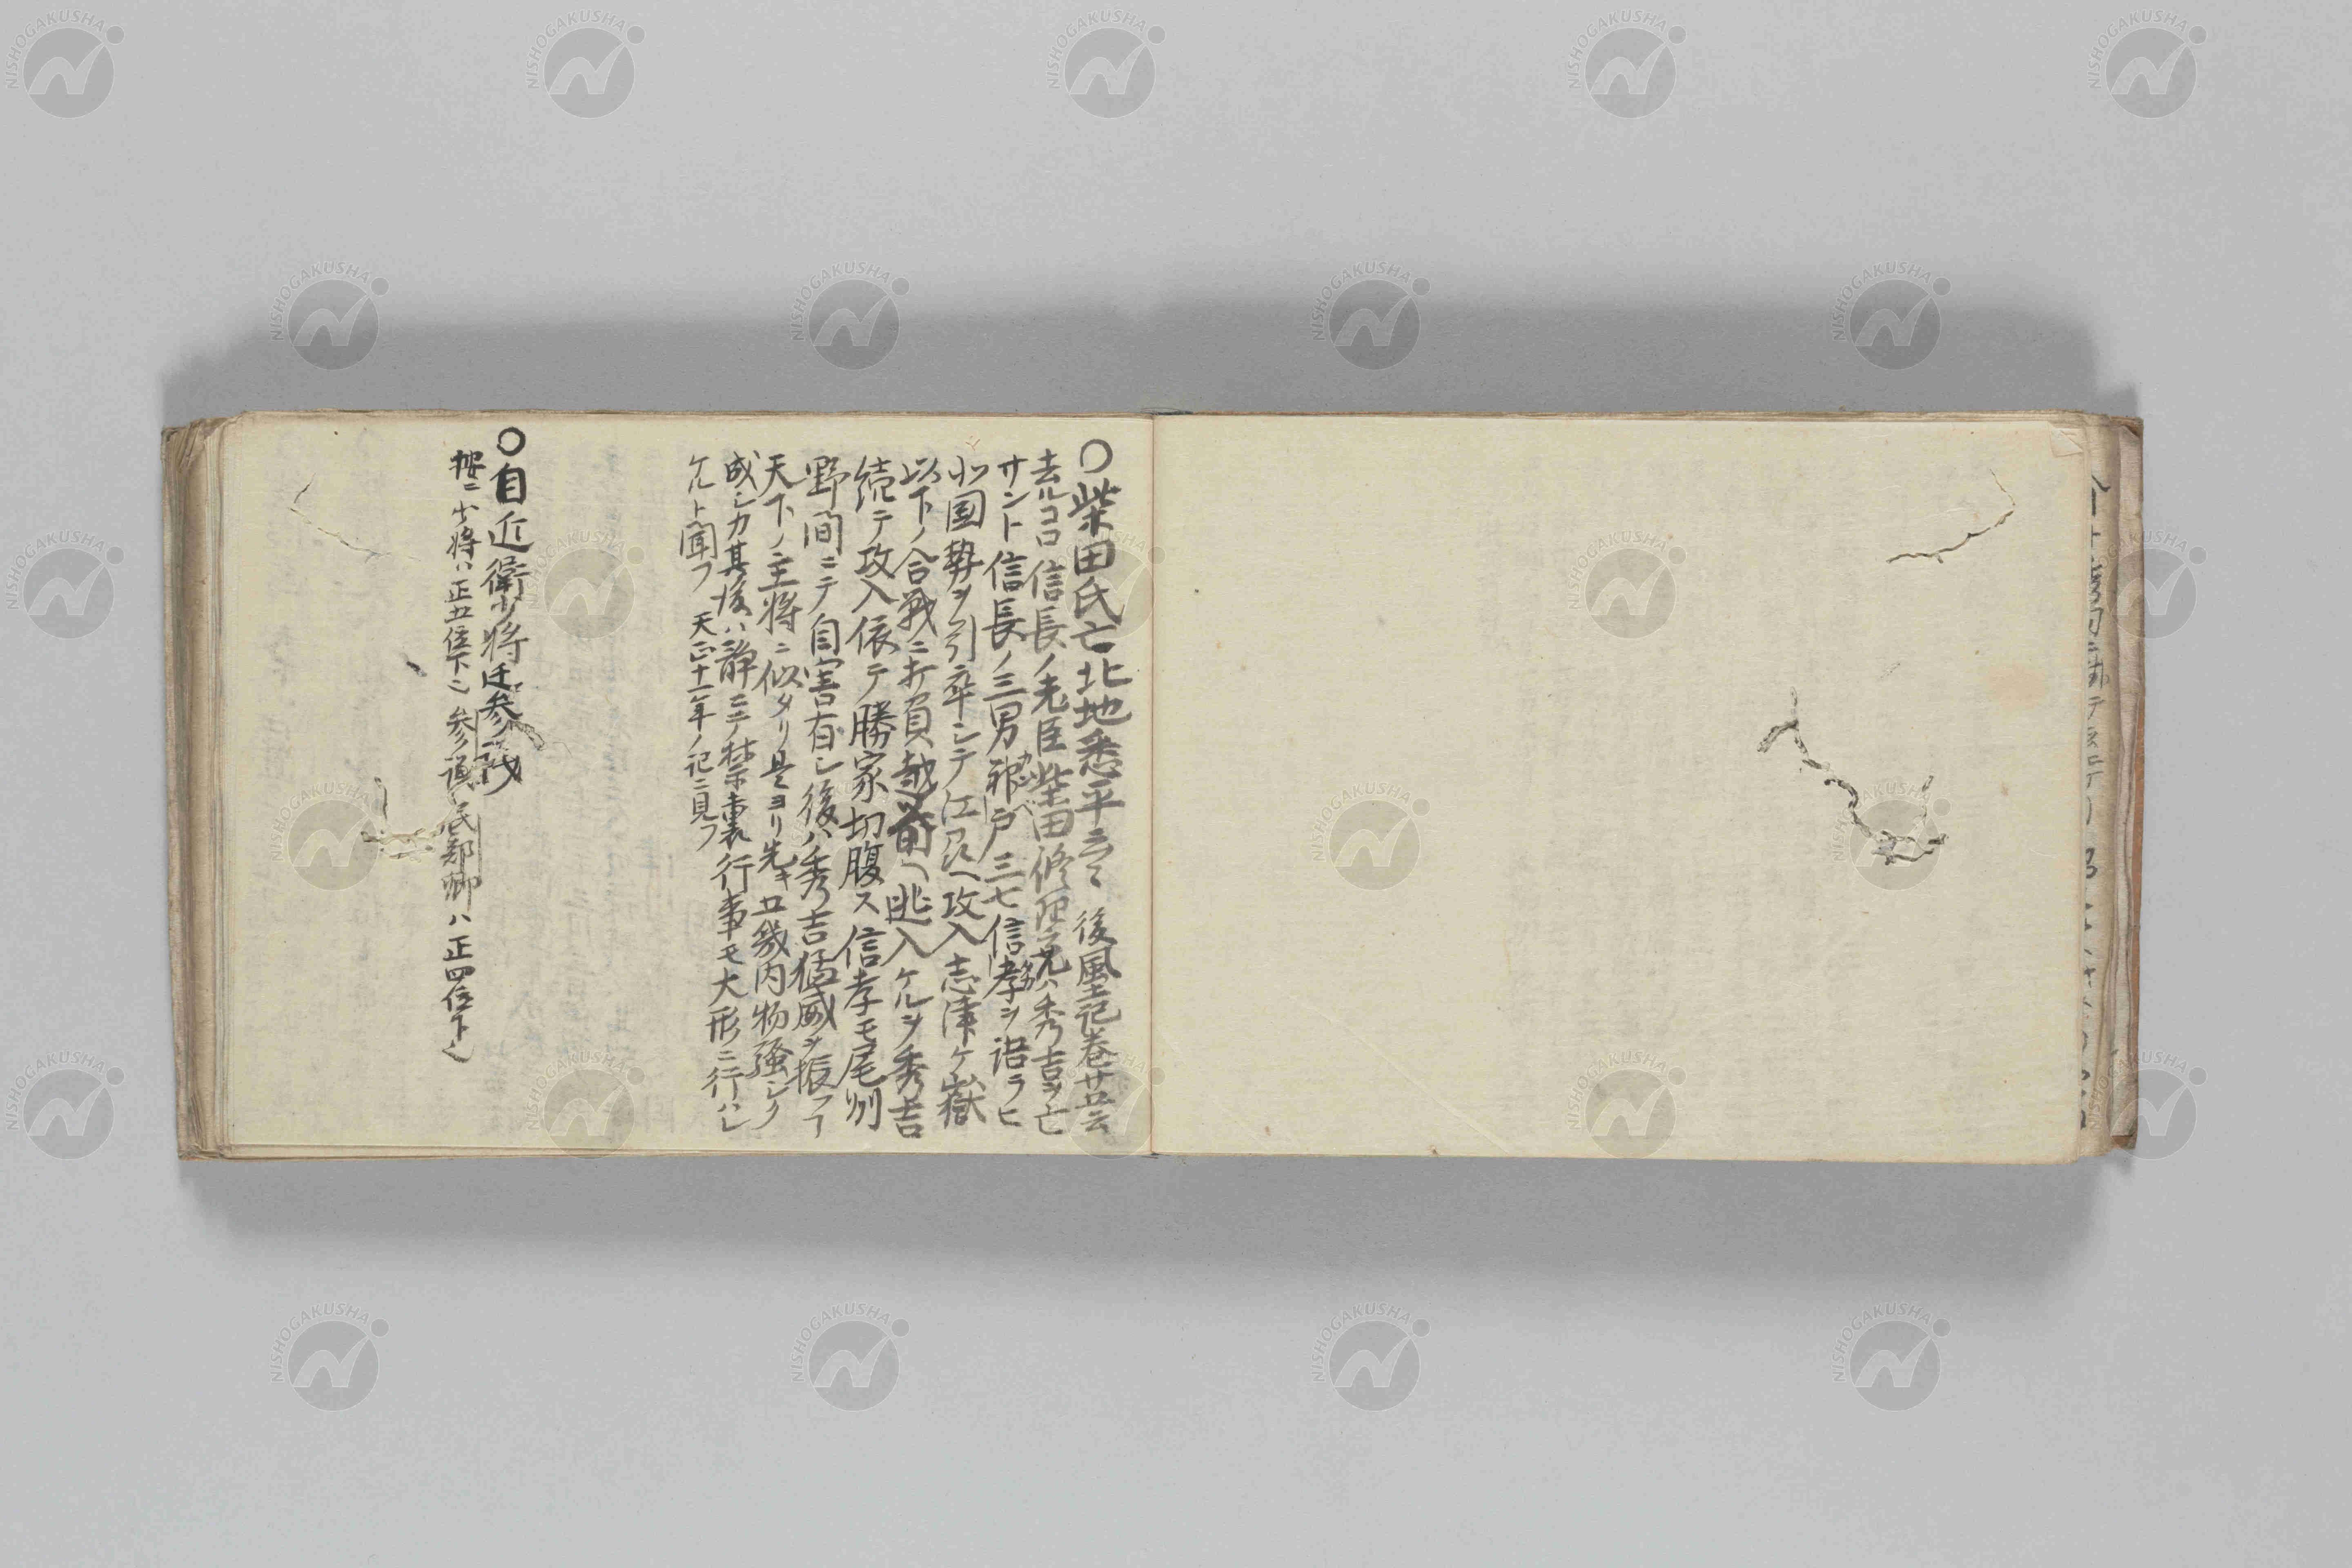 〇柴田氏亡北地悉平云々 後風土記巻廿五云
去ルコロ信長ノ老臣柴田修理亮ハ秀吉ヲ亡
サント信長ノ三男神戸三七信孝ヲ語ラヒ
北国勢ヲ引卒シテ江州ヘ攻入志津ケ嶽
以下ノ合戦ニ打負越前ヘ逃入ケルヲ秀吉
続テ攻入依テ勝家切腹ス信孝モ尾州
野間ニテ自害有シ後ハ秀吉猛威ヲ振フ
天下ノ主将ニ似タリ是ヨリ先キ五畿内物騒シク
成シカ其後ハ静ニテ禁裏行事モ大形ニ行ハレ
ケルト聞フ 天正十一年ノ記ニ見フ
〇自近衛少将迁参議
按ニ少将ハ正五位下也参議民部卿ハ正四位下也
NISHOGAKUSHA